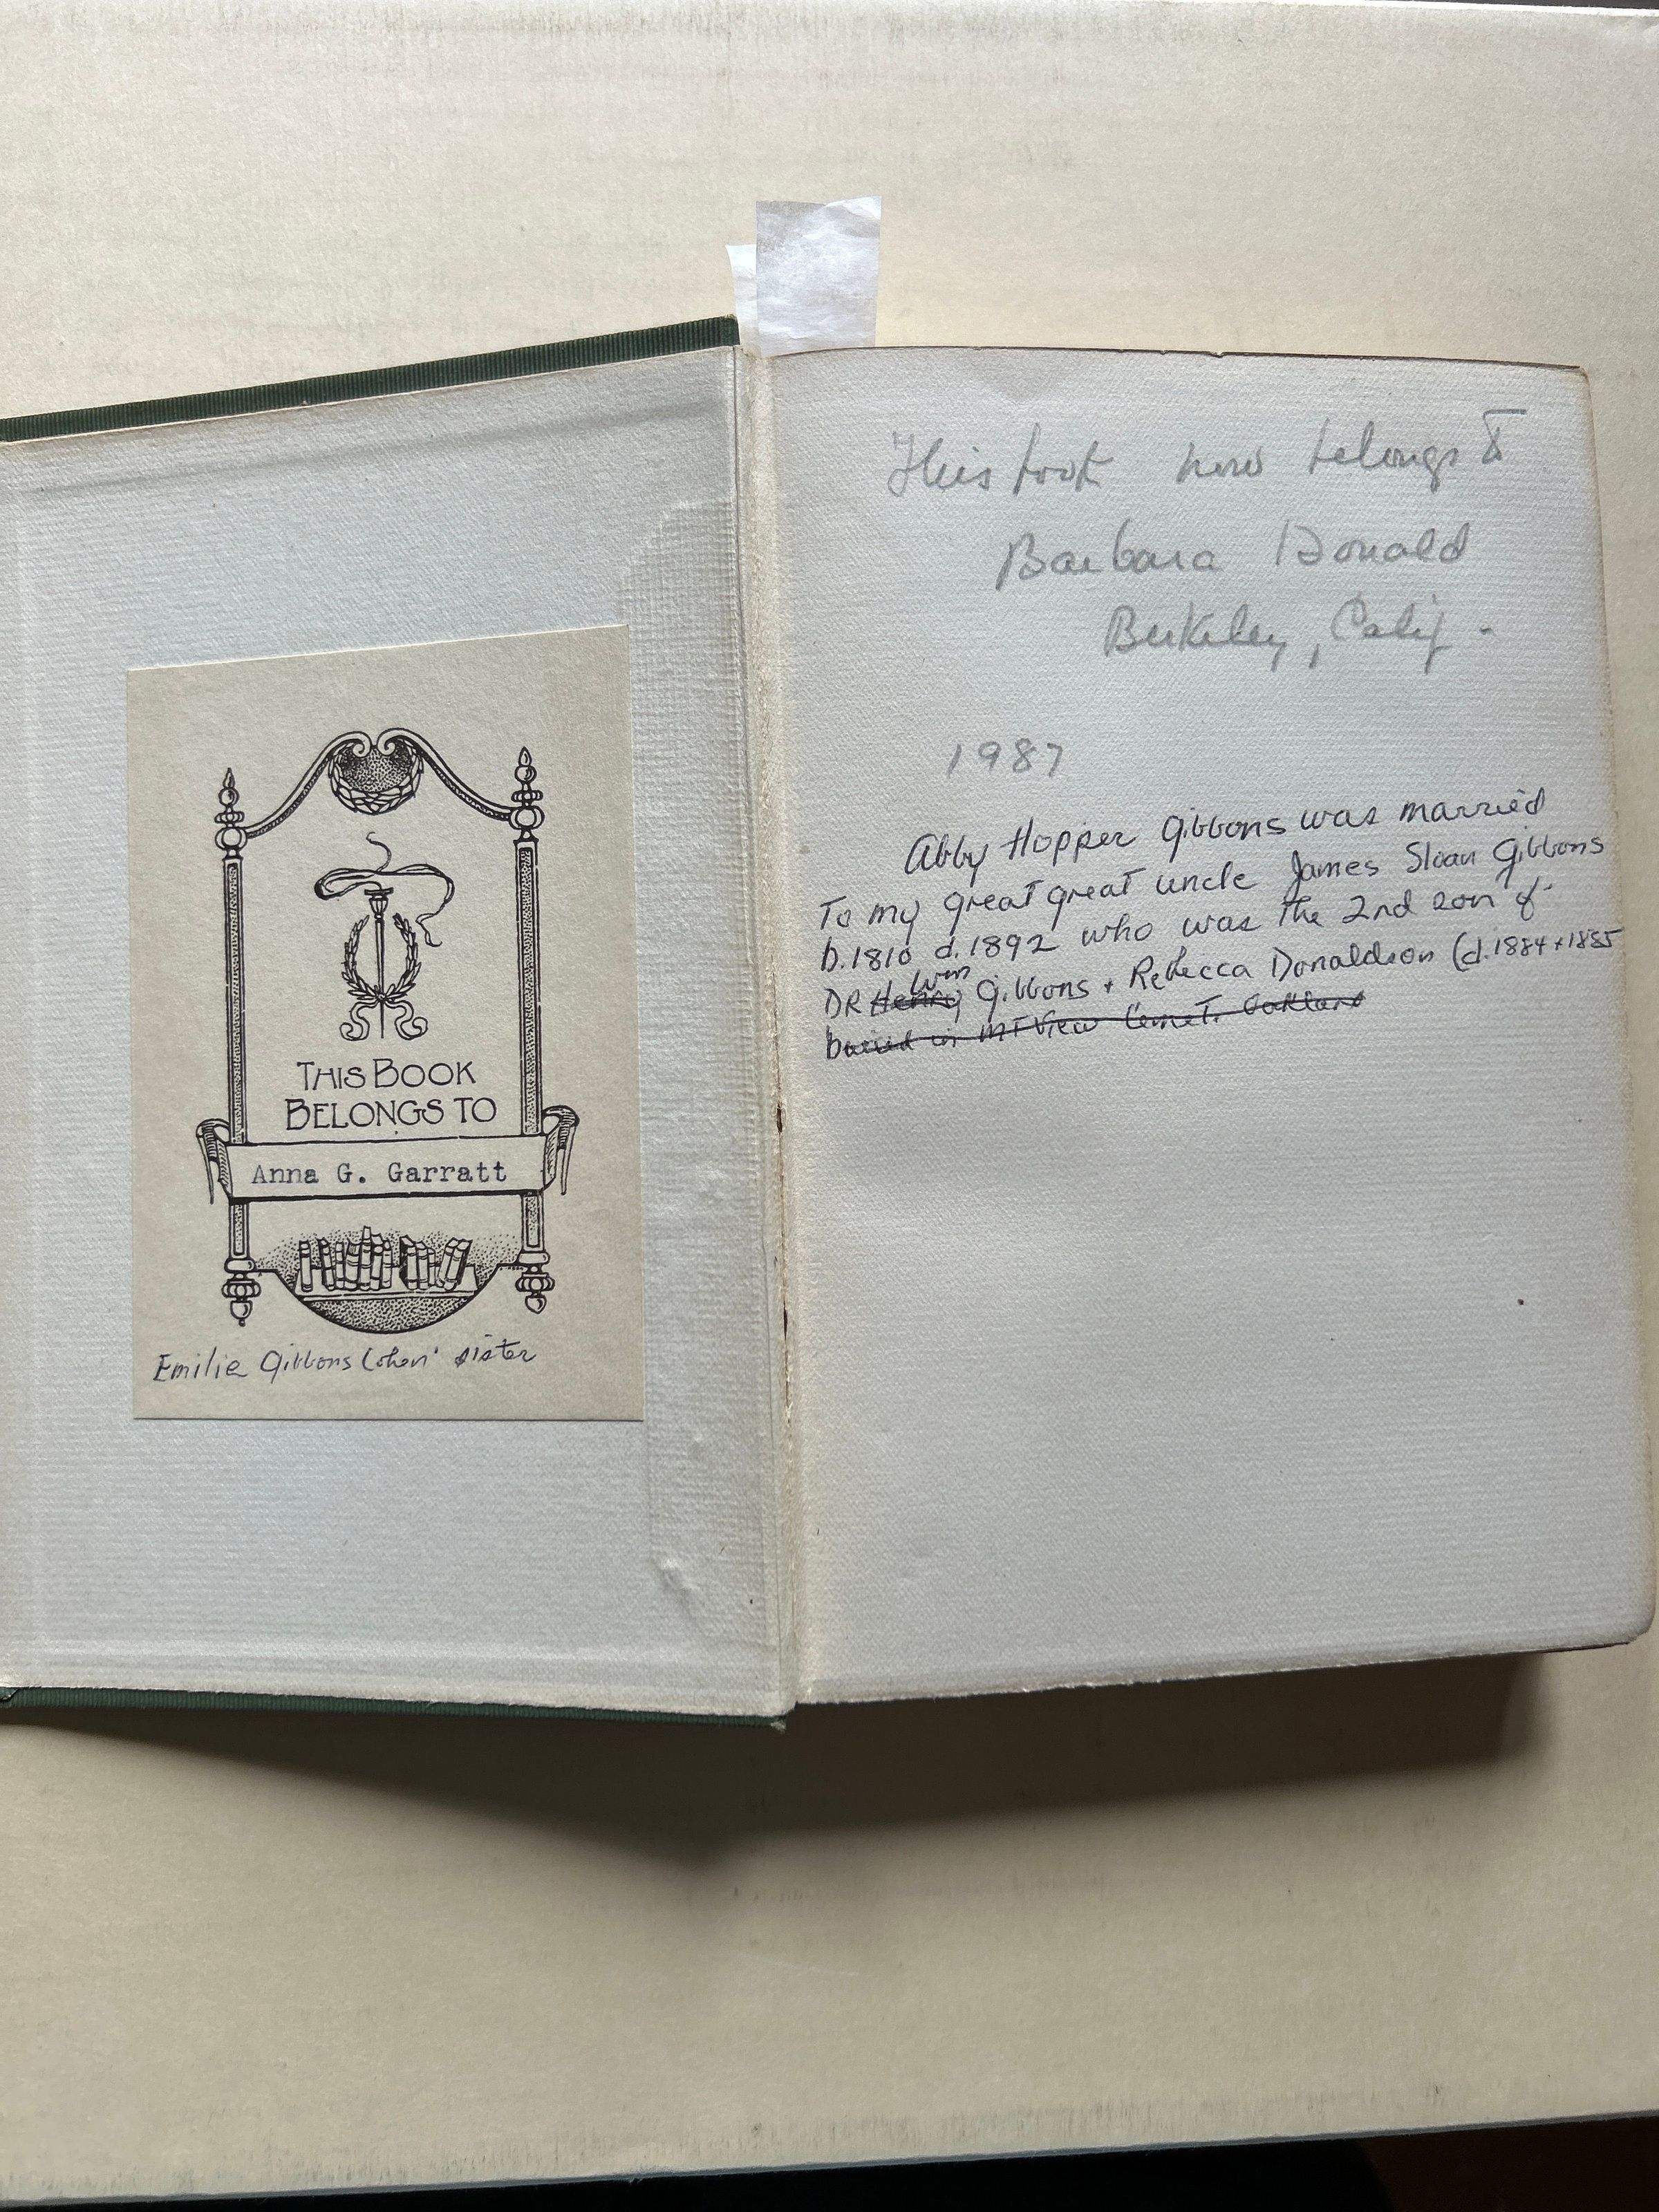 THIS BOOK
BELONGS TO
Anna G. Garratt
Emilie Gibbons Cohen' sister
This book now belongs to
Barbara Donald
Berkeley, Calif -
1987
Abby Hopper Gibbons was married
To my great great uncle James Sloan Gibbons
b.1810 d.1892 who was the 2nd son of
Wm
DR Henry Gibbons + Rebecca Donaldson (d. 1884 + 1885
buried in MT View Cemet. Oakland